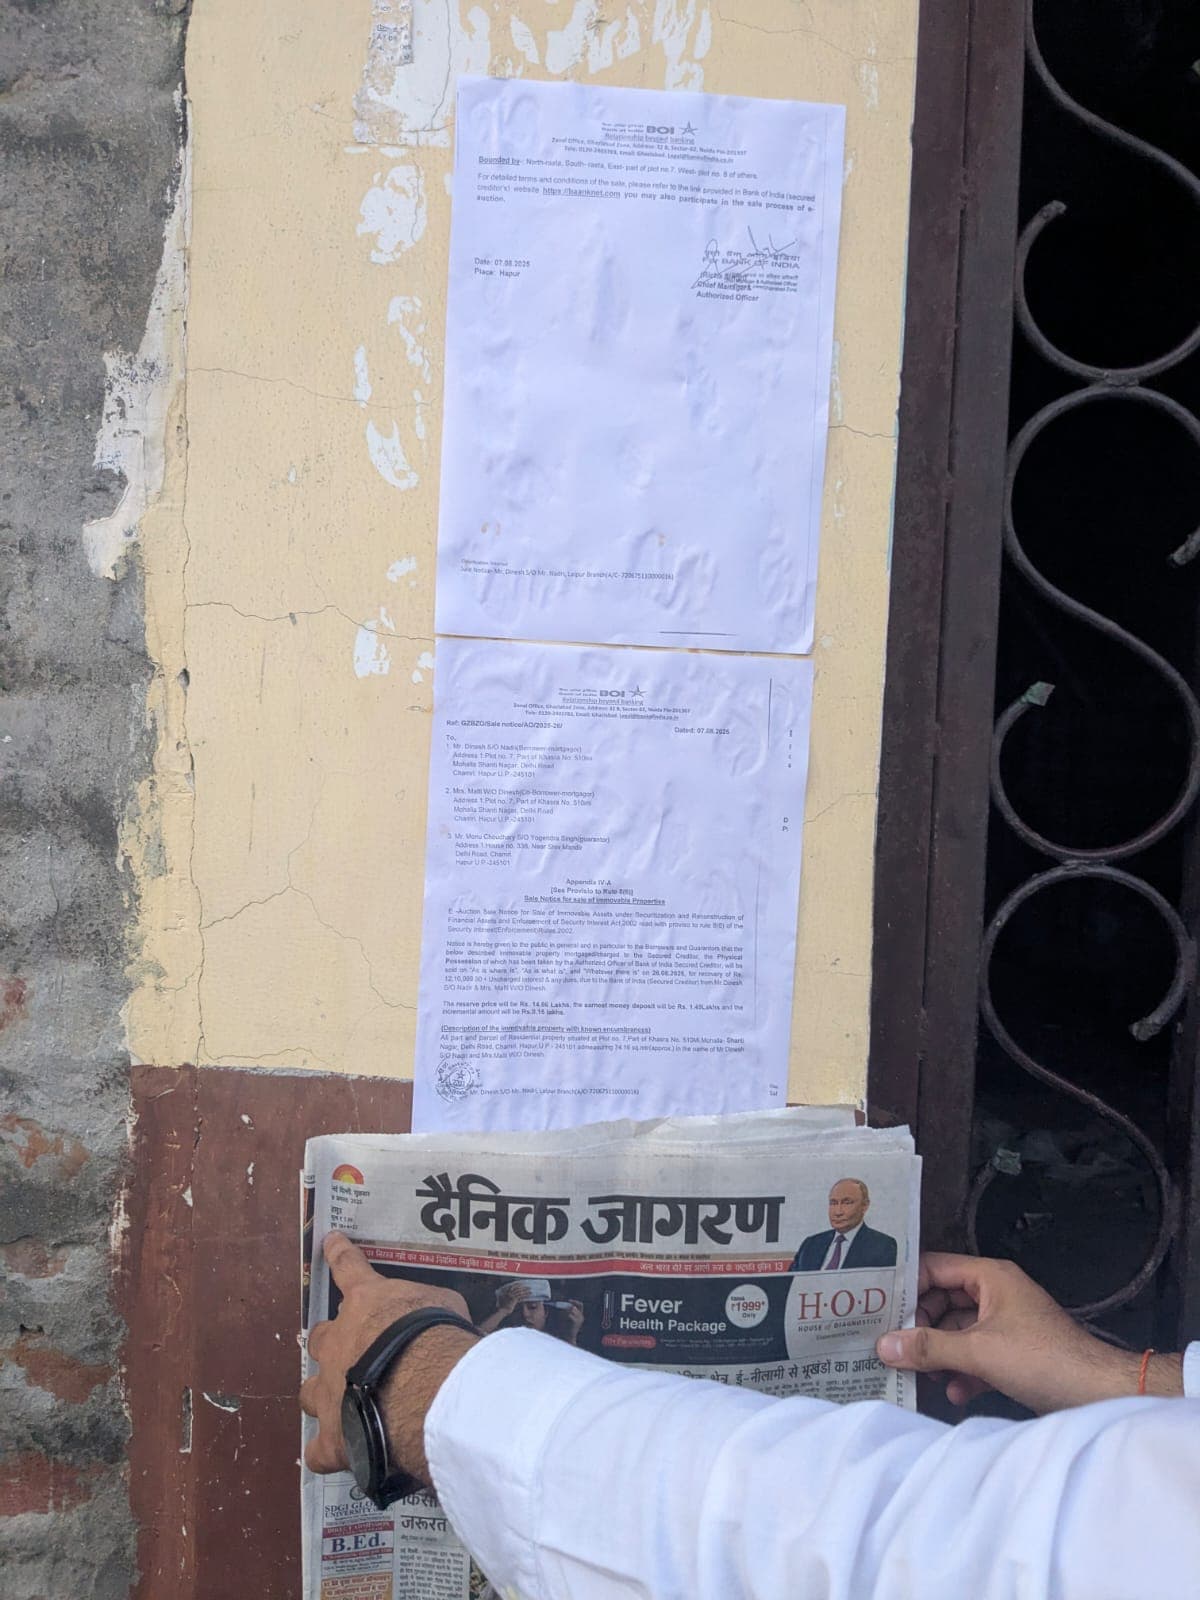 BOI
Relationship beyond banking
Zonal Office, Ghaziabad Zone, Address: 32 B, Sector-62, Noida Pin-201307
Bounded by:- North-rasta, South- rasta, East- part of plot no.7, West- plot no. 8 of others.
For detailed terms and conditions of the sale, please refer to the link provided in Bank of India (secured
creditor's) website https://baanknet.com you may also participate in the sale process of e-
auction.
For BANK OF INDIA
Date: 07.08.2025
Place: Hapur
Chief Manager &
Authorized Officer
Sale Notice- Mr. Dinesh S/O Mr. Nadir, Laipur Branch(A/C- 720675110000016)
BOI
Relationship beyond banking
Zonal Office, Ghaziabad Zone, Address: 32 B, Sector-62, Noida Pin-201307
Ref: GZBZO/Sale notice/AO/2025-26/
Dated: 07.08.2025
To,
1. Mr. Dinesh S/O Nadir(Borrower-mortgagor)
Address 1:Plot no. 7, Part of Khasra No. 510mi
Mohalla Shanti Nagar, Delhi Road
Chamri, Hapur U.P.-245101
2. Mrs. Malti W/O Dinesh(Co-Borrower-mortgagor)
Address 1:Plot no. 7, Part of Khasra No. 510mi
Mohalla Shanti Nagar, Delhi Road
Chamri, Hapur U.P.-245101
3. Mr. Monu Choudhary S/O Yogendra Singh(guarantor)
Address 1:House no. 338, Near Shiv Mandir
Delhi Road, Chamri,
Hapur U.P.-245101
Appendix IV-A
[See Proviso to Rule 8(6)]
Sale Notice for sale of Immovable Properties
E -Auction Sale Notice for Sale of Immovable Assets under Securitization and Reconstruction of
Financial Assets and Enforcement of Security Interest Act,2002 read with proviso to rule 8(6) of the
Security Interest(Enforcement) Rules,2002.
Notice is hereby given to the public in general and in particular to the Borrowers and Guarantors that the
below described immovable property mortgaged/charged to the Secured Creditor, the Physical
Possession of which has been taken by the Authorized Officer of Bank of India Secured Creditor, will be
sold on "As is where is", "As is what is", and "Whatever there is" on 26.08.2025, for recovery of Rs.
Uncharged interest & any dues, due to the Bank of India (Secured Creditor) from Mr.Dinesh
S/O Nadir & Mrs. Malti W/O Dinesh.
The reserve price will be Rs. 14.86 Lakhs, the earnest money deposit will be Rs. 1.49Lakhs and the
incremental amount will be Rs.0.15 lakhs.
(Description of the immovable property with known encumbrances)
All part and parcel of Residential property situated at Plot no. 7,Part of Khasra No. 510Mi,Mohalla- Shanti
Nagar, Delhi Road, Chamri, Hapur,U.P - 245101 admeasuring 74.16 sq.mtr(approx.) in the name of Mr.Dinesh
S/O Nadir and Mrs.Malti W/O Dinesh.
Mr. Dinesh S/O Mr. Nadir, Laipur Branch(A/C-720675110000016)
दैनिक जागरण
नई दिल्ली, शुक्रवार
हापुड़
7
जल्द भारत दौरे पर आएंगे रूस के राष्ट्रपति पुतिन 13
Fever
Health Package
₹1999*
Only
H·O·D
HOUSE of DIAGNOSTICS
क्षेत्र, ई-नीलामी से भूखंडों का आवंटन
SDGI GLOBAL
UNIVERSITY
B.Ed.
जरूरत